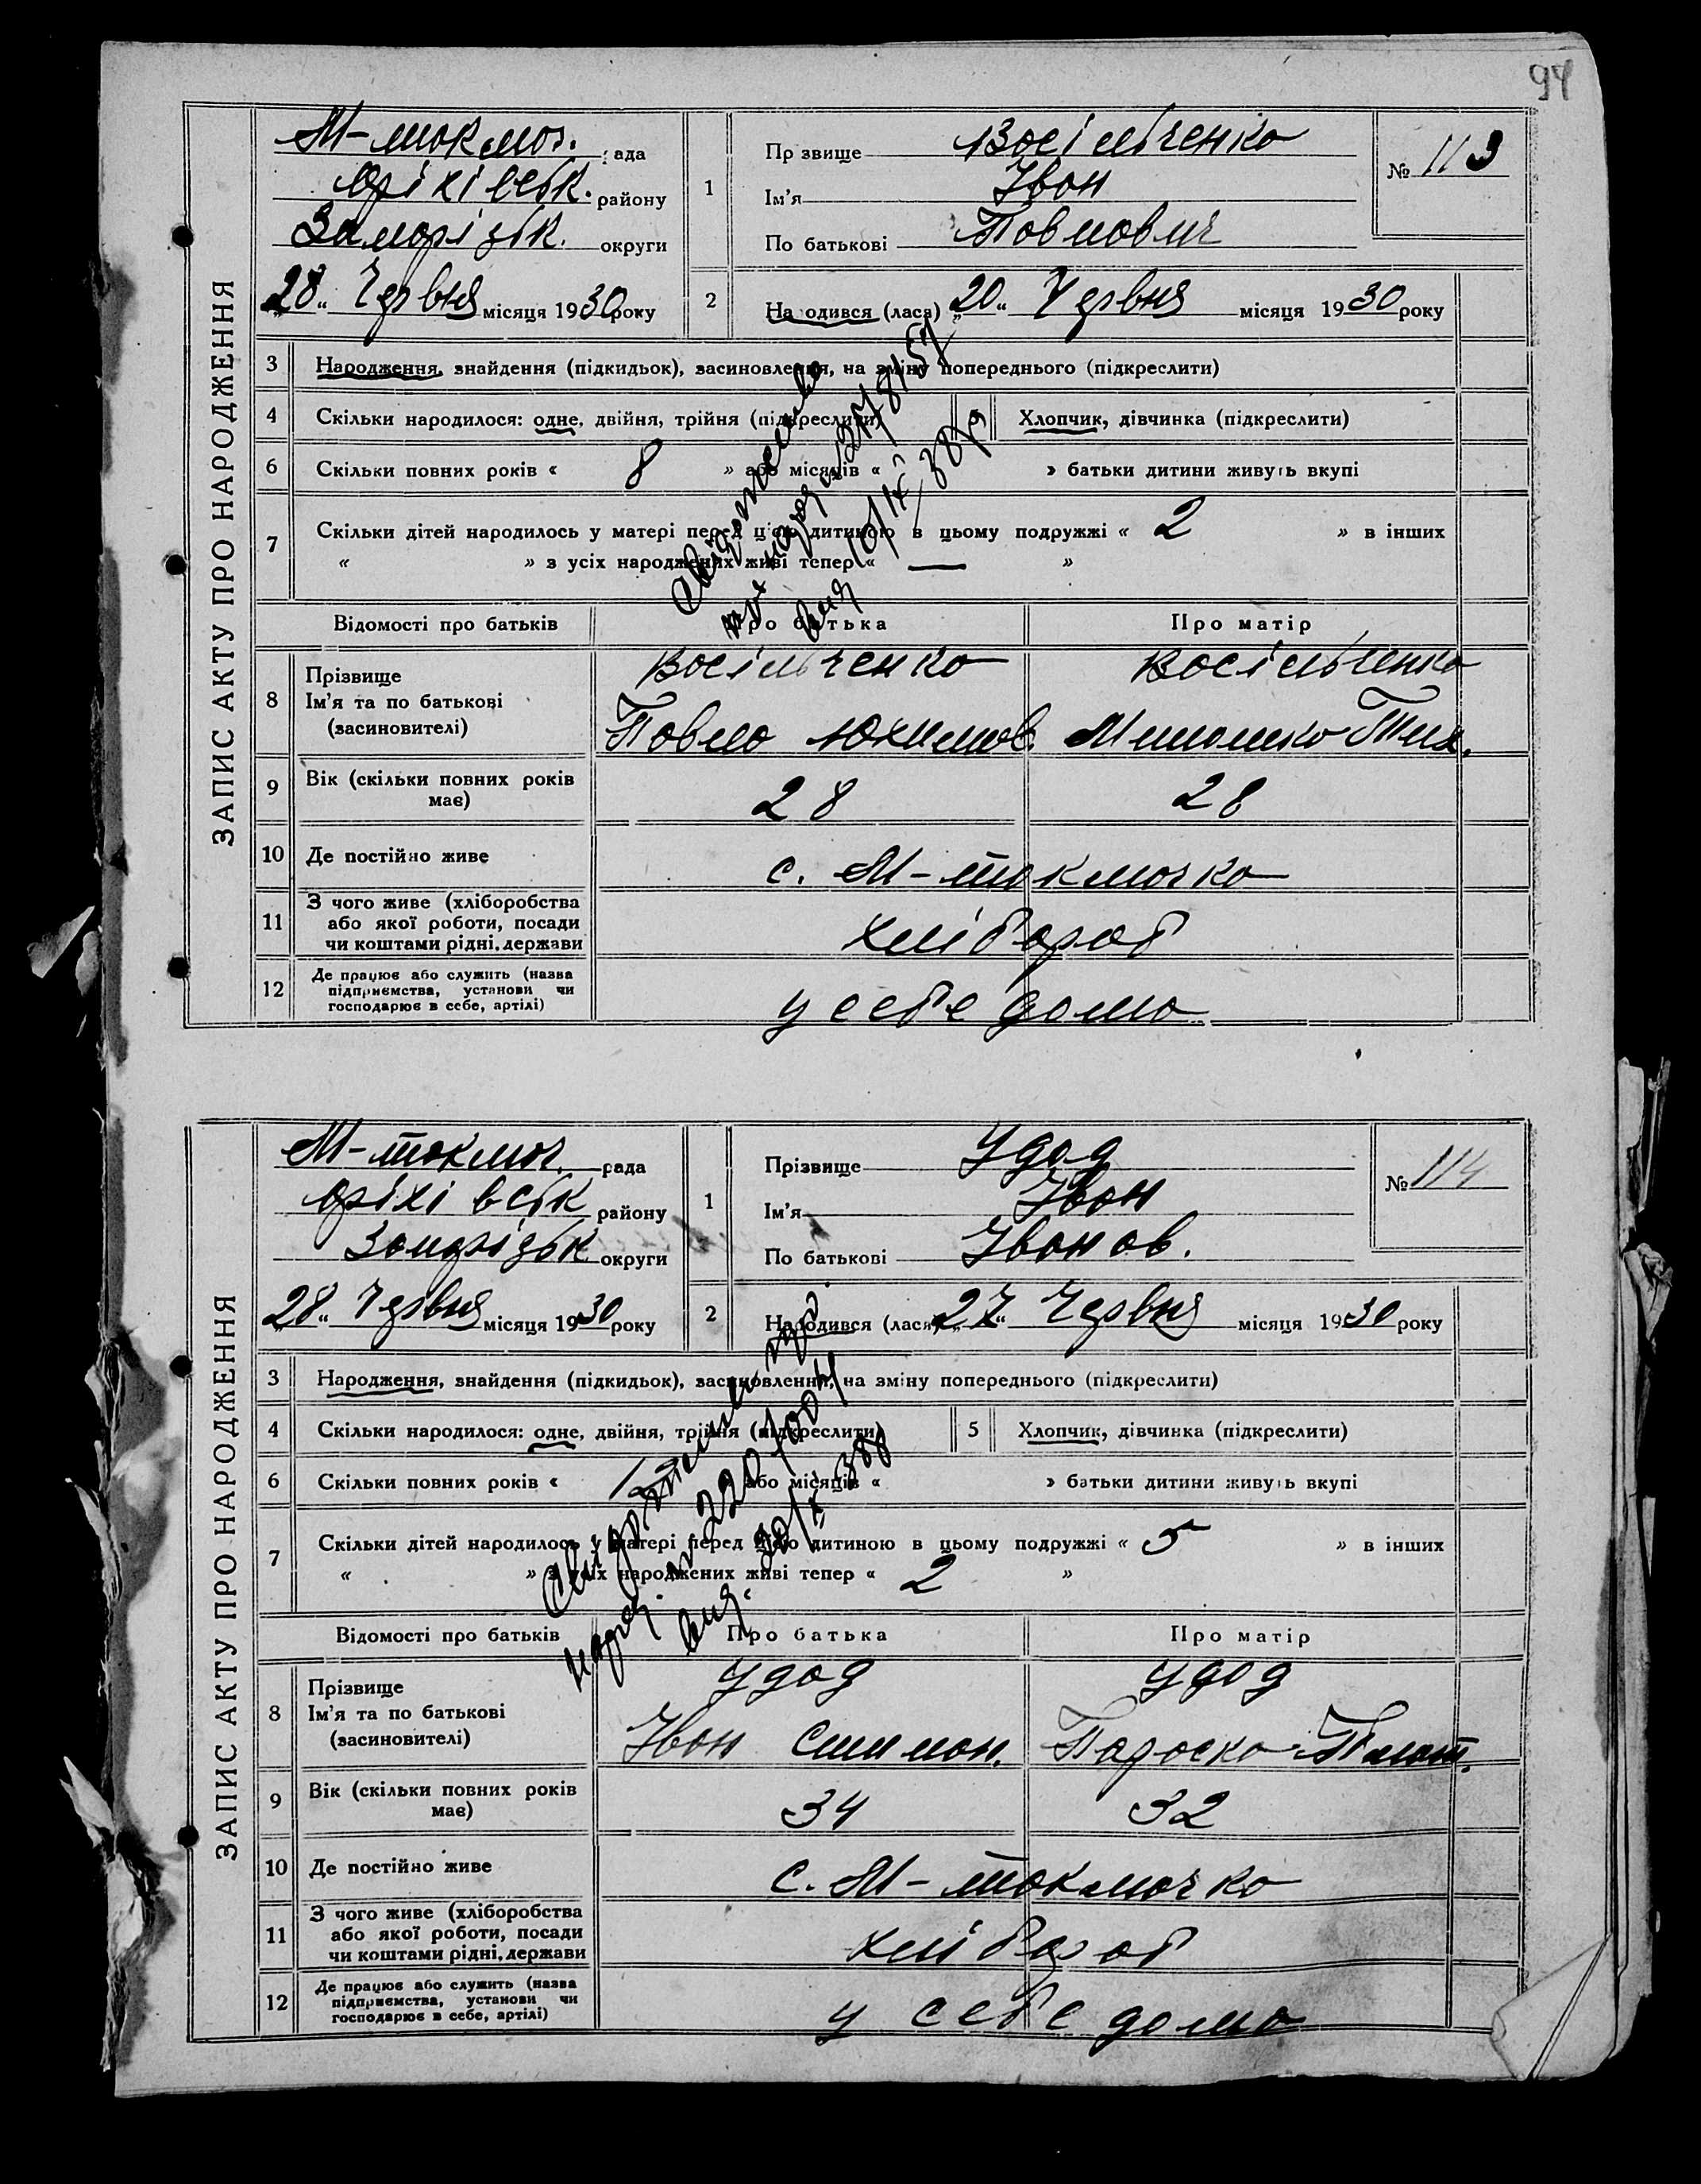 94
ЗАПИС АКТУ ПРО НАРОДЖЕННЯ
М-токмач. рада
Оріхівськ. району
Запорізьк. округи
„28“ Червня місяця 1930 року
1
Прізвище Васільченко
Ім'я Іван
По батькові Павлович
№ 113
2
Народився (лася) „20“ Червня місяця 1930 року
3 Народження, знайдення (підкидьок), засиновлення, на зміну попереднього (підкреслити)
4 Скільки народилося: одне, двійня, трійня (підкреслити) 5 Хлопчик, дівчинка (підкреслити)
6 Скільки повних років « 8 » або місяців « » батьки дитини живуть вкупі
7 Скільки дітей народилось у матері перед цією дитиною в цьому подружжі « 2 » в інших
« » з усіх народжених живі тепер « — »
Відомості про батьків Про батька Про матір
8 Прізвище
Ім'я та по батькові
(засновителі)
Васільченко Васільченко
Павло Юхимов. Тих.
9 Вік (скільки повних років має) 28 28
10 Де постійно живе с. М-токмачка
11 З чого живе (хліборобства або якої роботи, посади чи коштами рідні, держави хлібороб
12 Де працює або служить (назва підприємства, установи чи господарює в себе, артілі) у себе дома
ЗАПИС АКТУ ПРО НАРОДЖЕННЯ
М-токмач. рада
Оріхівськ району
Запорізьк округи
„28“ Червня місяця 1930 року
1
Прізвище Удод
Ім'я Іван
По батькові Іванов.
№ 114
2
Народився (лася) „27“ Червня місяця 1930 року
3 Народження, знайдення (підкидьок), засиновлення, на зміну попереднього (підкреслити)
4 Скільки народилося: одне, двійня, трійня (підкреслити) 5 Хлопчик, дівчинка (підкреслити)
6 Скільки повних років « 12 » або місяців « » батьки дитини живуть вкупі
7 Скільки дітей народилось у матері перед цією дитиною в цьому подружжі « 5 » в інших
« » з усіх народжених живі тепер « 2 »
Відомості про батьків Про батька Про матір
8 Прізвище
Ім'я та по батькові
(засиновителі)
Удод Удод
Іван Параска
9 Вік (скільки повних років має) 34 32
10 Де постійно живе с. М-токмачка
11 З чого живе (хліборобства або якої роботи, посади чи коштами рідні, держави хлібороб
12 Де працює або служить (назва підприємства, установи чи господарює в себе, артілі) у себе дома